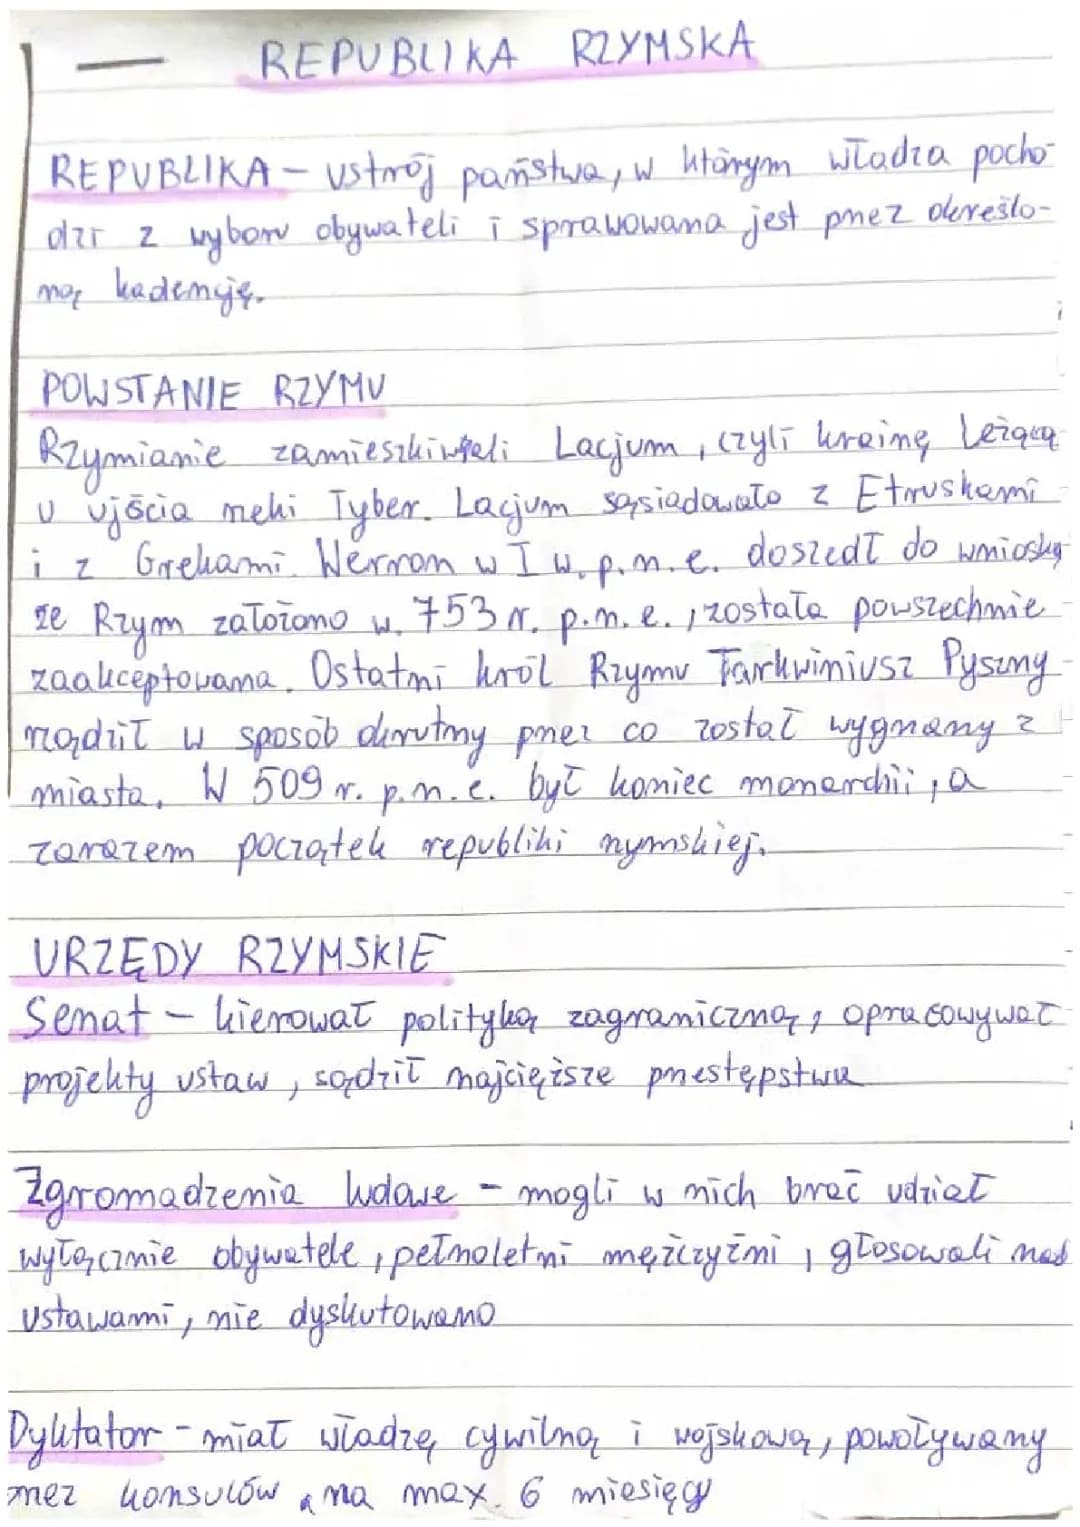 REPUBLIKA RZYMSKA
REPUBLIKA - ustrój państwa, w którym władza pocho-
dzi z wyboru obywateli i sprawowana jest przez określo-
ną kadencję.
POWSTANIE RZYMU
Rzymianie zamieszkiwali Lacjum, czyli krainę leżącą
u ujścia rzeki Tyber. Lacjum sąsiadowało z Etruskami
i z Grekami. Werron w I w. p.n.e. doszedł do wniosku
że Rzym założono w. 753 r. p.n.e., została powszechnie
zaakceptowana. Ostatni król Rzymu Tarkwiniusz Pyszny
rządził w sposób okrutny przez co został wygnany z
miasta. W 509 r. p.n.e. był koniec monarchii, a
zarazem początek republiki rzymskiej.
URZĘDY RZYMSKIE
Senat - kierował polityką zagraniczną, opracowywał
projekty ustaw, sądził najcięższe przestępstwa
Zgromadzenia ludowe - mogli w nich brać udział
wyłącznie obywatele, pełnoletni mężczyźni, głosowali nad
ustawami, nie dyskutowano
Dyktator - miał władzę cywilną i wojskową, powoływany
przez konsulów na max. 6 miesięcy